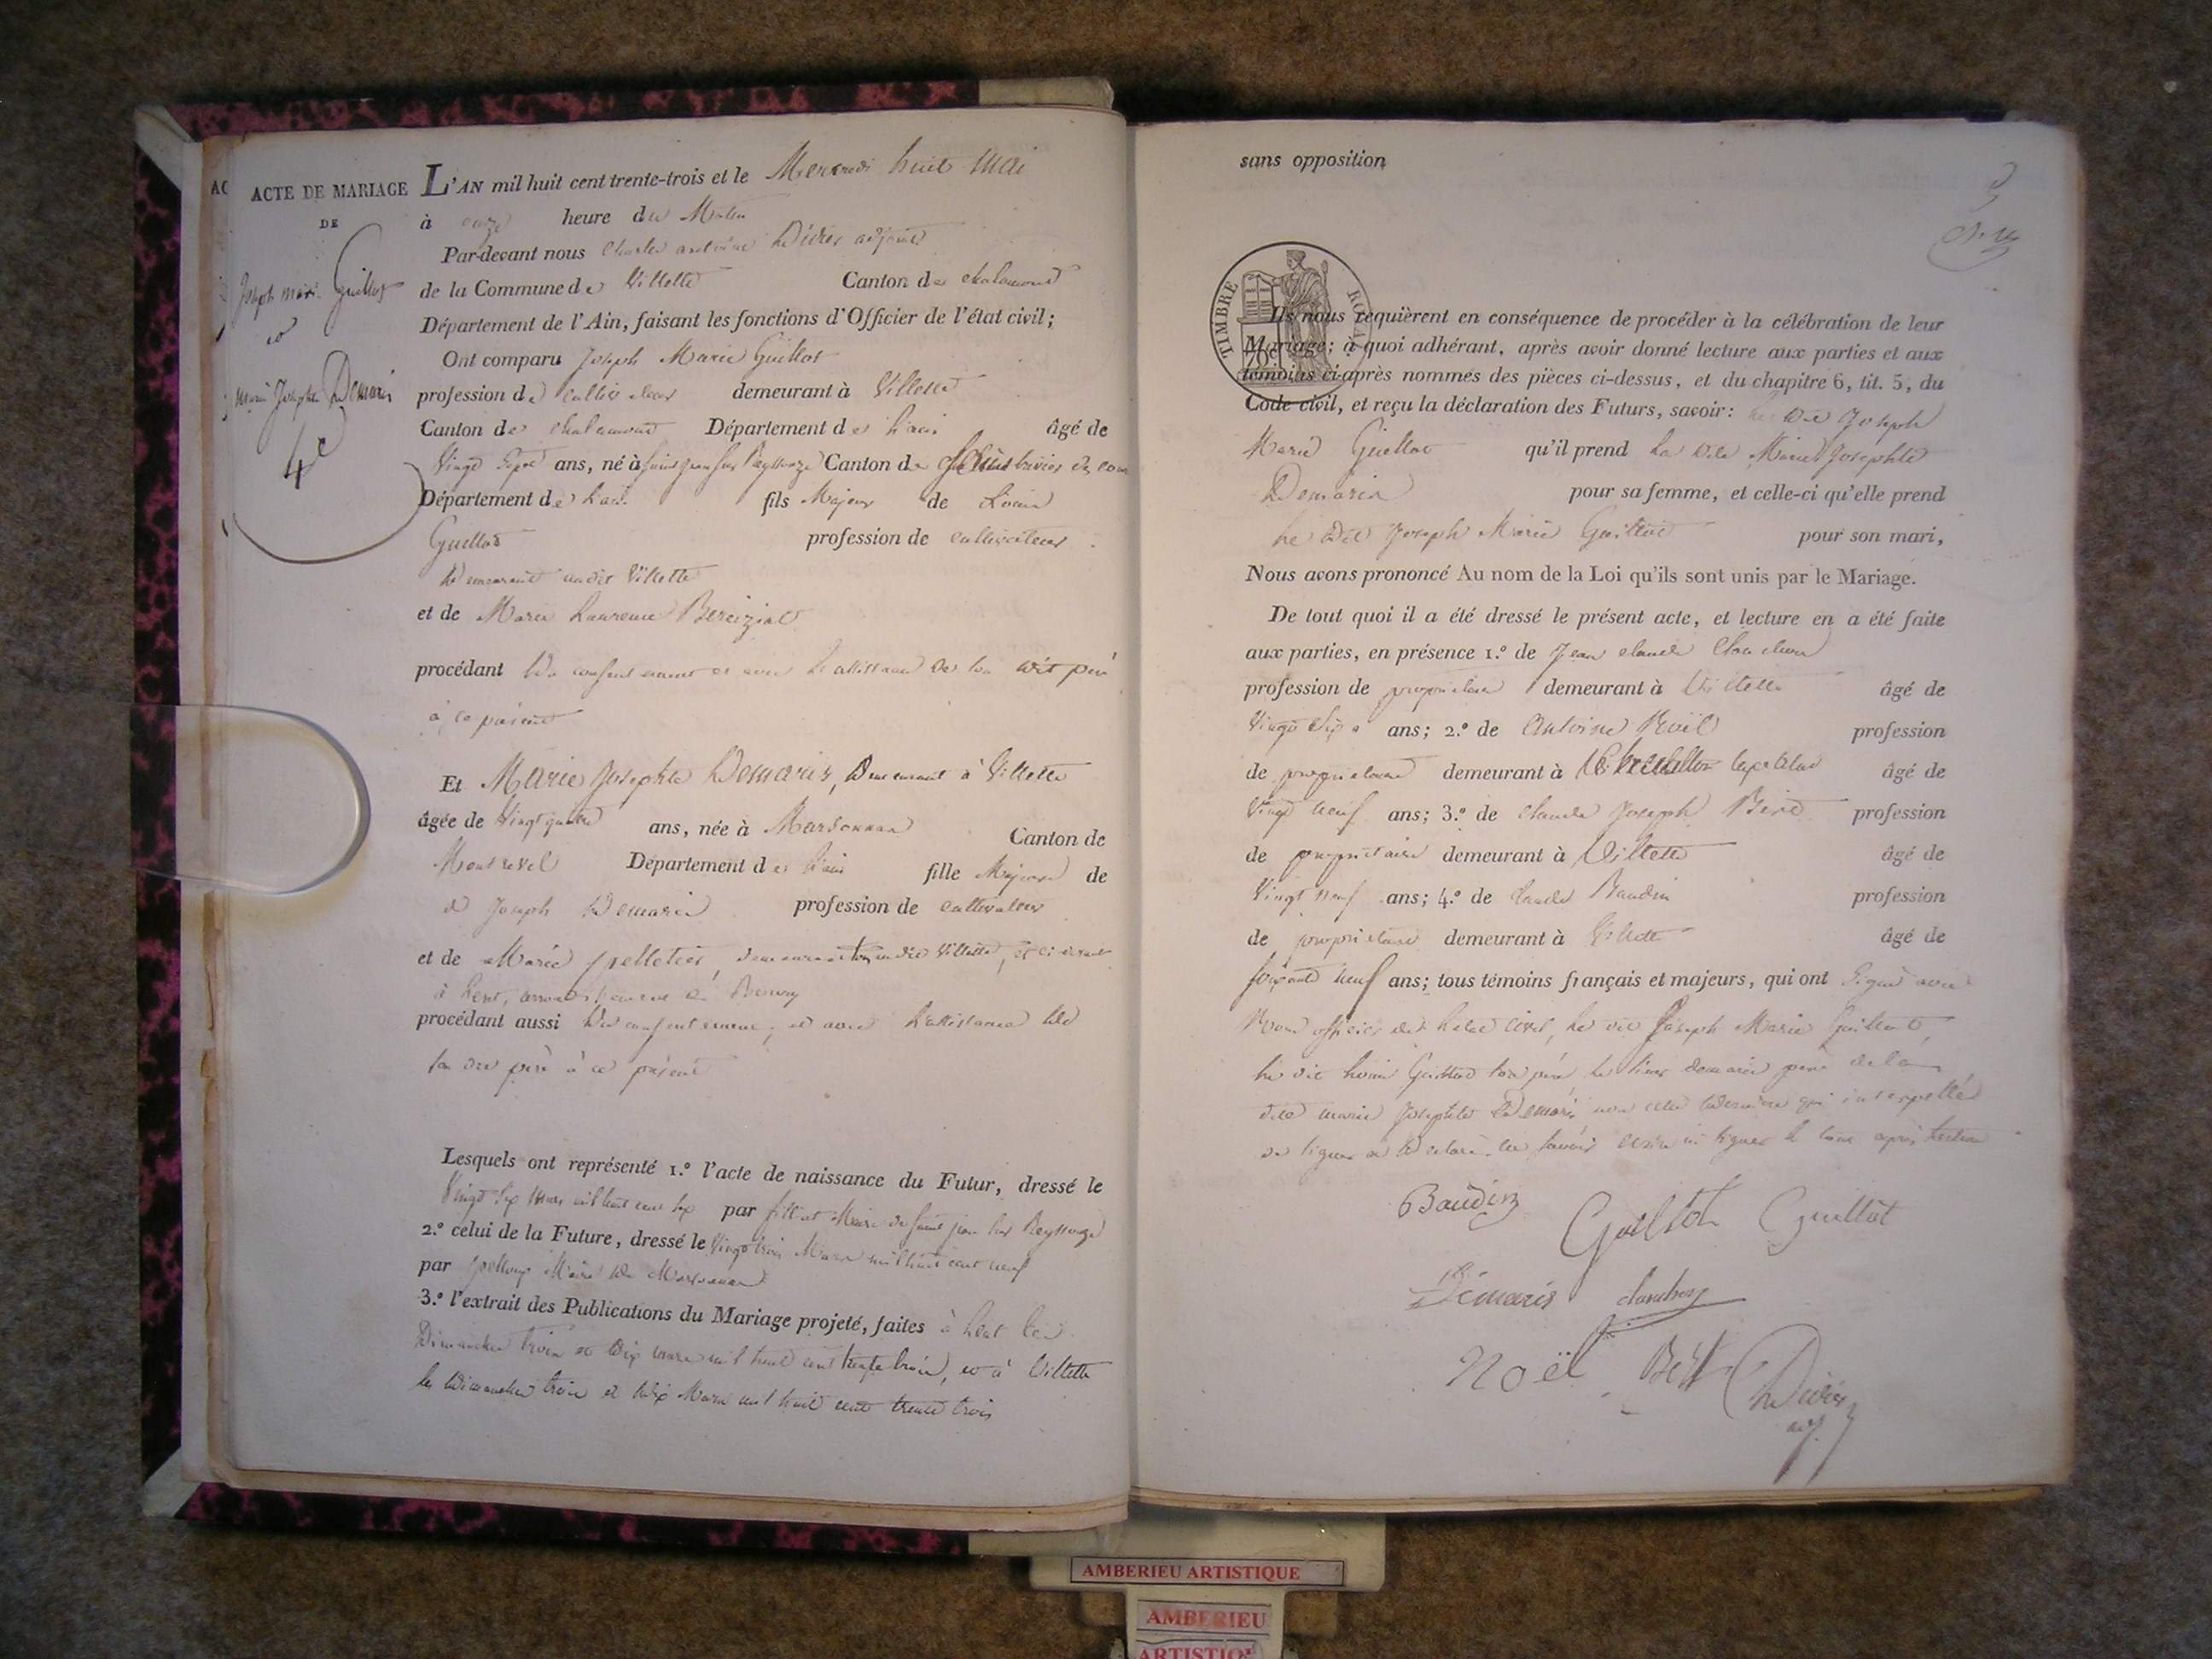 ACTE DE MARIAGE
DE
Joseph marie Guillot
et
marie Josephte Demaris
4e
L'AN mil huit cent trente-trois et le Mercredi huit Mai
à onze heure du Matin
Par-devant nous Charles antoine Didier adjoint
de la Commune de Villette Canton de chalamont
Département de l'Ain, faisant les fonctions d'Officier de l'état civil;
Ont comparu Joseph Marie Guillot
profession de cultivateur demeurant à Villette
Canton de chalamont Département de l'ain âgé de
Vingt Sept ans, né à Saint jean sur Reyssouze Canton de
Département de l'ain fils Majeur de Louis
Guillot profession de cultivateur
Demeurant audit Villette
et de Marie Laurence Bereiziat
procédant Du consentement et avec L'assistance de son dit père
à ce présent
Et Marie Josephte Demaris, Demeurant à Villette
âgée de Vingt quatre ans, née à Marsonnas Canton de
Montrevel Département de l'ain fille Majeure de
Joseph Demaris profession de cultivateur
et de Marie pelletier, demeurant audit Villette, et ci devant
à Lent, arrondissement de Bourg
procédant aussi Du consentement, et avec L'assistance de
son dit père à ce présent
Lesquels ont représenté 1.º l'acte de naissance du Futur, dressé le
Vingt Six Mars mil huit cent Six par Maire de Saint jean sur Reyssouze
2.º celui de la Future, dressé le Vingt trois Mars mil huit cent neuf
par Maire de Marsonnas
3.º l'extrait des Publications du Mariage projeté, faites à Lent les
Dimanches trois et Dix mars mil huit cent trente trois, et à Villette
les Dimanches trois et Dix Mars mil huit cent trente trois
sans opposition
TIMBRE ROYAL
70c
Ils nous requièrent en conséquence de procéder à la célébration de leur
Mariage; à quoi adhérant, après avoir donné lecture aux parties et aux
témoins ci-après nommés des pièces ci-dessus, et du chapitre 6, tit. 5, du
Code civil, et reçu la déclaration des Futurs, savoir: le Dit Joseph
Marie Guillot qu'il prend La dite Marie Josephte
Demaris pour sa femme, et celle-ci qu'elle prend
Le Dit Joseph Marie Guillot pour son mari,
Nous avons prononcé Au nom de la Loi qu'ils sont unis par le Mariage.
De tout quoi il a été dressé le présent acte, et lecture en a été faite
aux parties, en présence 1.º de Jean claude
profession de propriétaire demeurant à Villette âgé de
Vingt Six ans; 2.º de Antoine Noël profession
de propriétaire demeurant à âgé de
Vingt neuf ans; 3.º de Claude Joseph profession
de propriétaire demeurant à Villette âgé de
Vingt neuf ans; 4.º de Claude Baudin profession
de propriétaire demeurant à Villette âgé de
soixante neuf ans; tous témoins français et majeurs, qui ont Signé avec
Nous officier de L'état civil, Le dit Joseph Marie Guillot,
Le dit Louis Guillot son père, Le sieur demaris père de la
dite marie Josephte Demaris non cette Dernière qui interpellée
de signer a Déclaré ne savoir écrire ni signer le tout après Lecture
Baudin Guillot Guillot
Demaris
Noël Didier
adj
AMBERIEU ARTISTIQUE
AMBERIEU
ARTISTIQUE